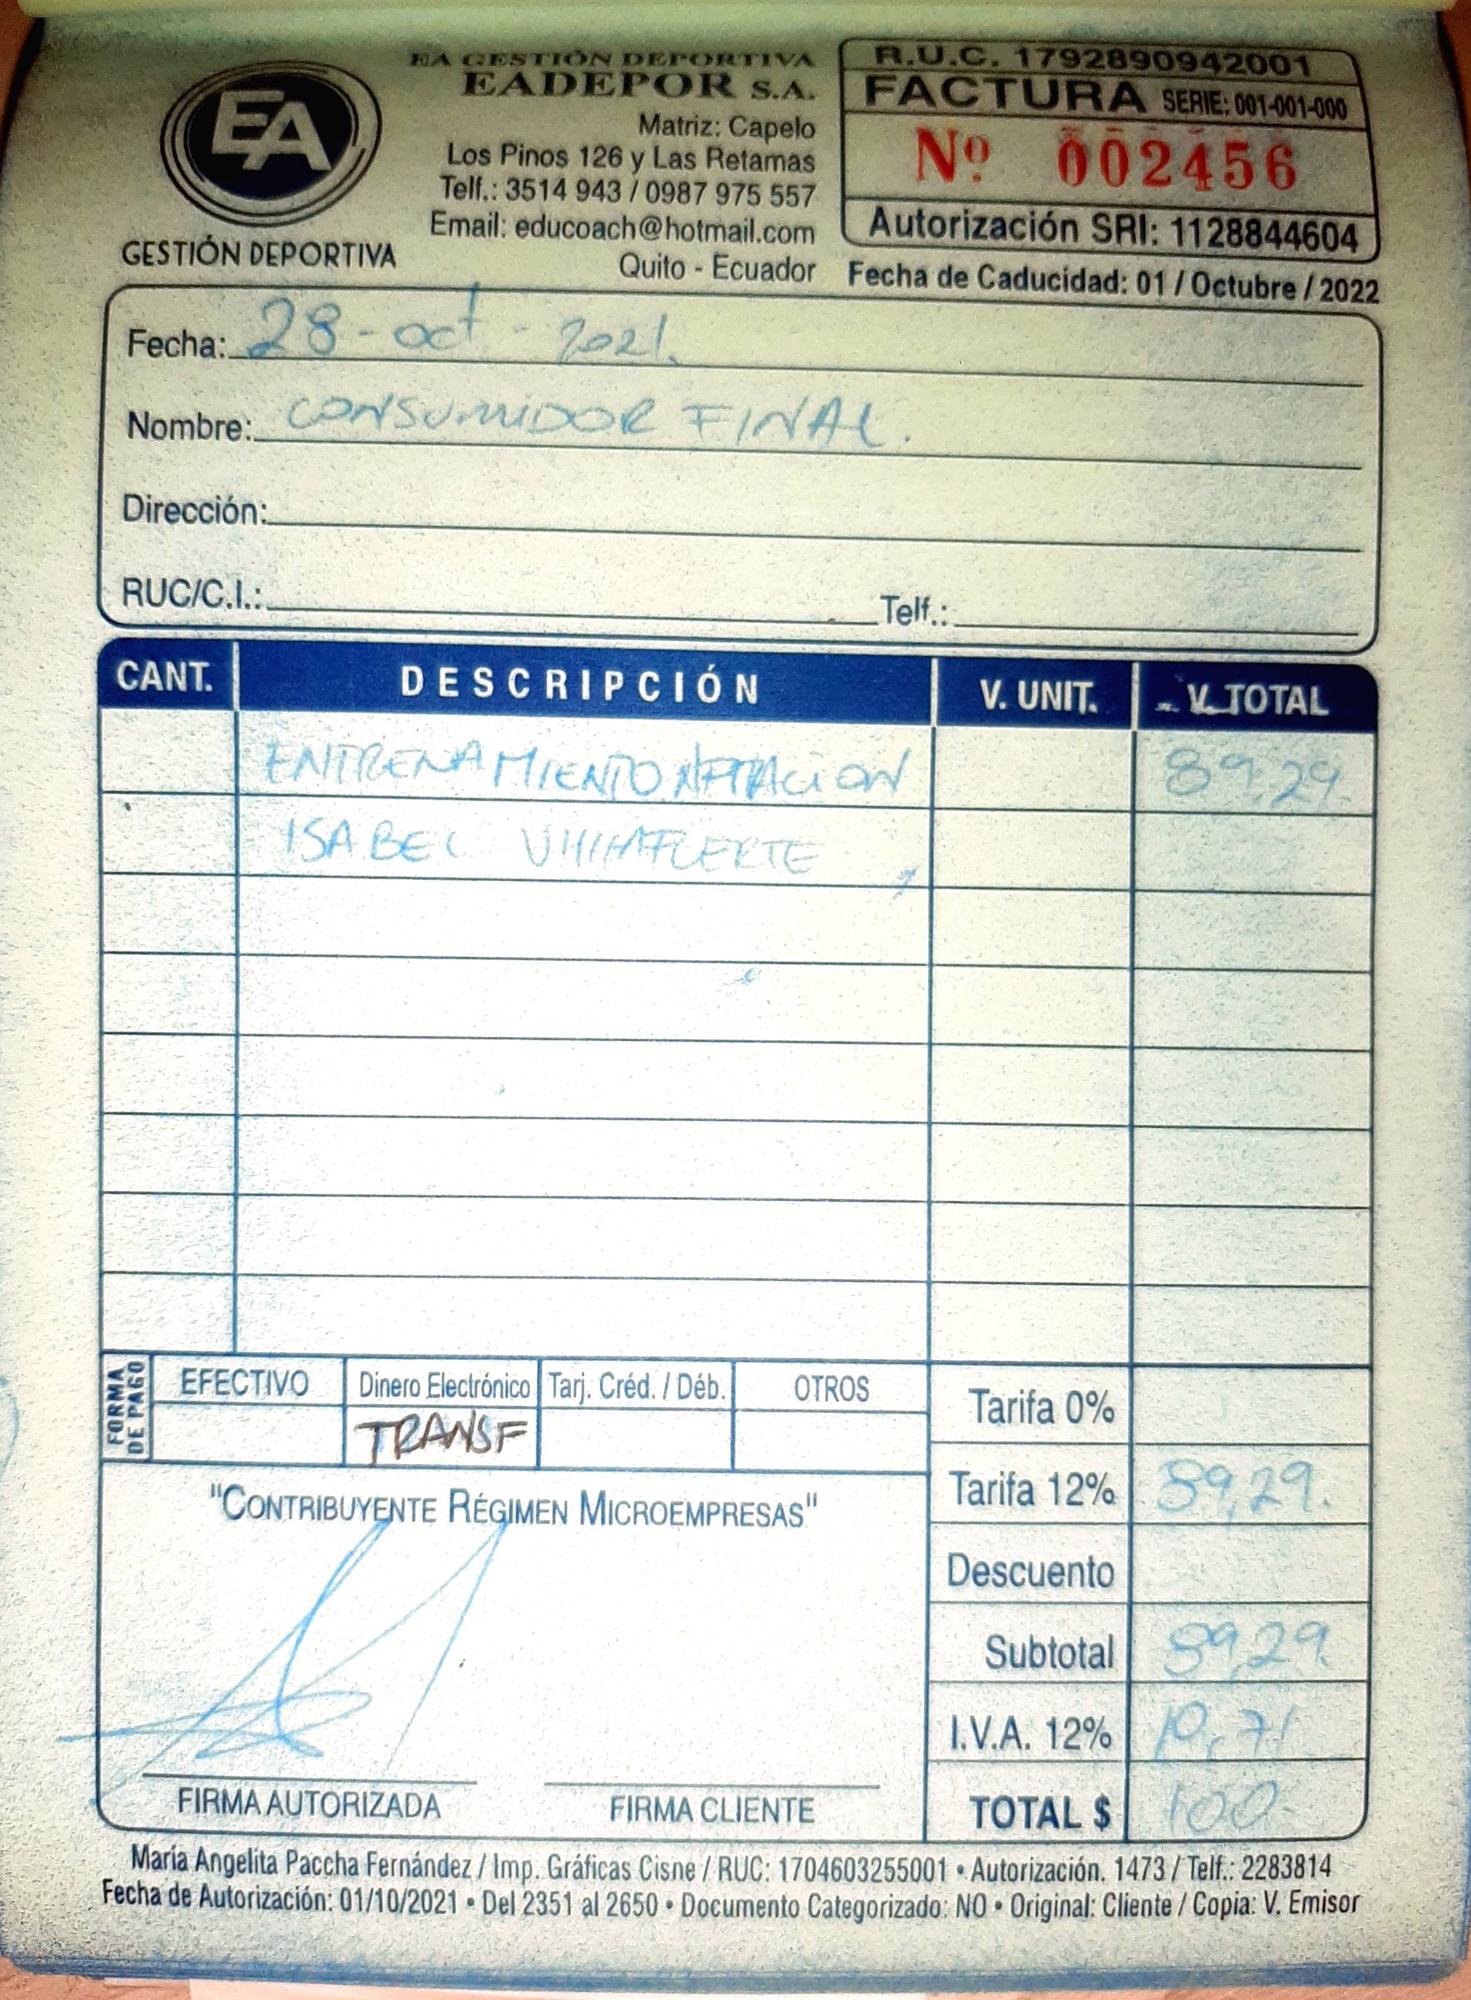 EA
GESTIÓN DEPORTIVA
EA GESTIÓN DEPORTIVA
EADEPOR S.A.
Matriz: Capelo
Los Pinos 126 y Las Retamas
Telf.: 3514 943 / 0987 975 557
Email: educoach@hotmail.com
Quito - Ecuador
R.U.C. 1792890942001
FACTURA SERIE: 001-001-000
Nº 002456
Autorización SRI: 1128844604
Fecha de Caducidad: 01 / Octubre / 2022
Fecha: 28 - oct - 2021.
Nombre: CONSUMIDOR FINAL.
Dirección:
RUC/C.I.: Telf.:
CANT. DESCRIPCIÓN V. UNIT. V. TOTAL
ENTRENAMIENTO NATACION 89,29.
ISABEL VILLAFUERTE
FORMA DE PAGO
EFECTIVO Dinero Electrónico Tarj. Créd. / Déb. OTROS
TRANSF
Tarifa 0%
Tarifa 12% 89,29.
Descuento
Subtotal 89,29.
I.V.A. 12% 10,71
TOTAL $ 100.
"CONTRIBUYENTE RÉGIMEN MICROEMPRESAS"
FIRMA AUTORIZADA FIRMA CLIENTE
María Angelita Paccha Fernández / Imp. Gráficas Cisne / RUC: 1704603255001 • Autorización. 1473 / Telf.: 2283814
Fecha de Autorización: 01/10/2021 • Del 2351 al 2650 • Documento Categorizado: NO • Original: Cliente / Copia: V. Emisor